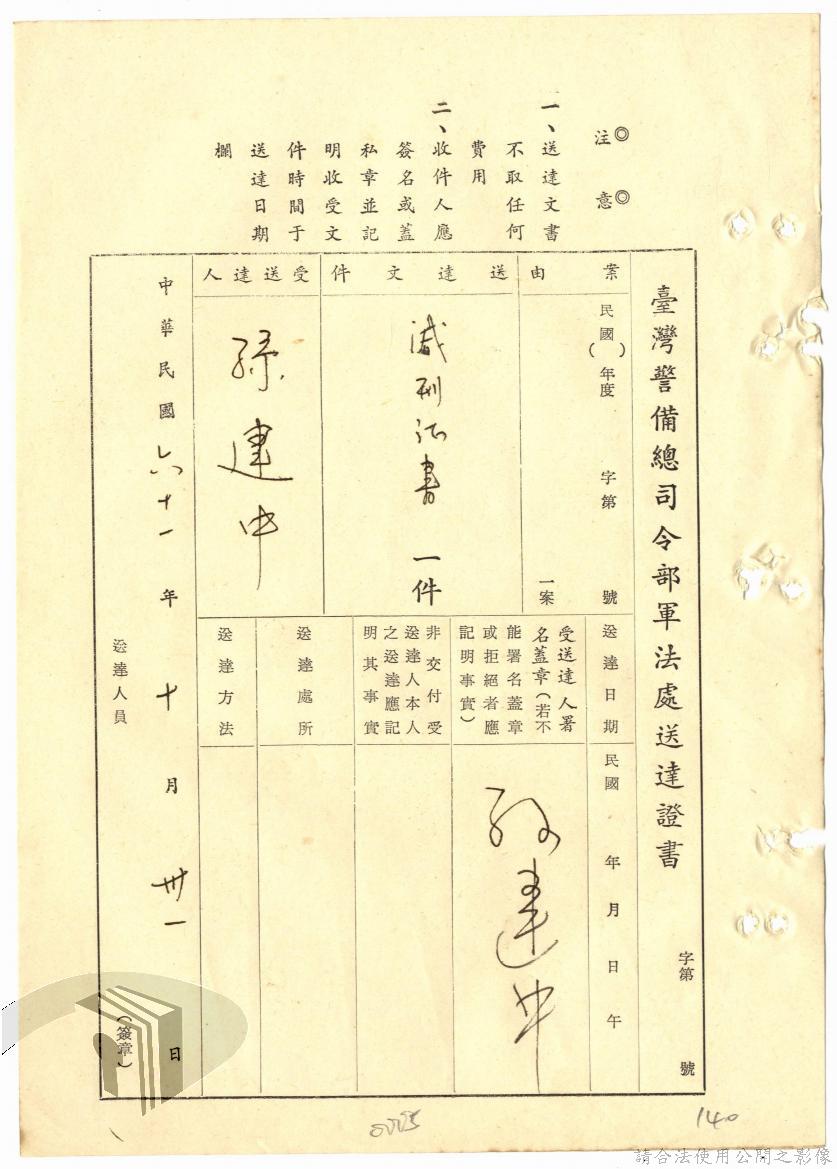 ◎注意◎
一、送達文書
不取任何
費用
二、收件人應
簽名或蓋
私章並記
明收受文
件時間于
送達日期
欄
臺灣警備總司令部軍法處送達證書
字第 號
案由
民國( )年度 字第 號
一案
送達文件
減刑 書 一件
受送達人
孫建中
送達日期
民國 年 月 日 午
受送達人署
名蓋章(若不
能署名蓋章
或拒絕者應
記明事實)
孫建中
非交付受
送達人本人
之送達應記
明其事實
送達處所
送達方法
中華民國六十一年十月卅一日
送達人員 (簽章)
140
請合法使用公開之影像